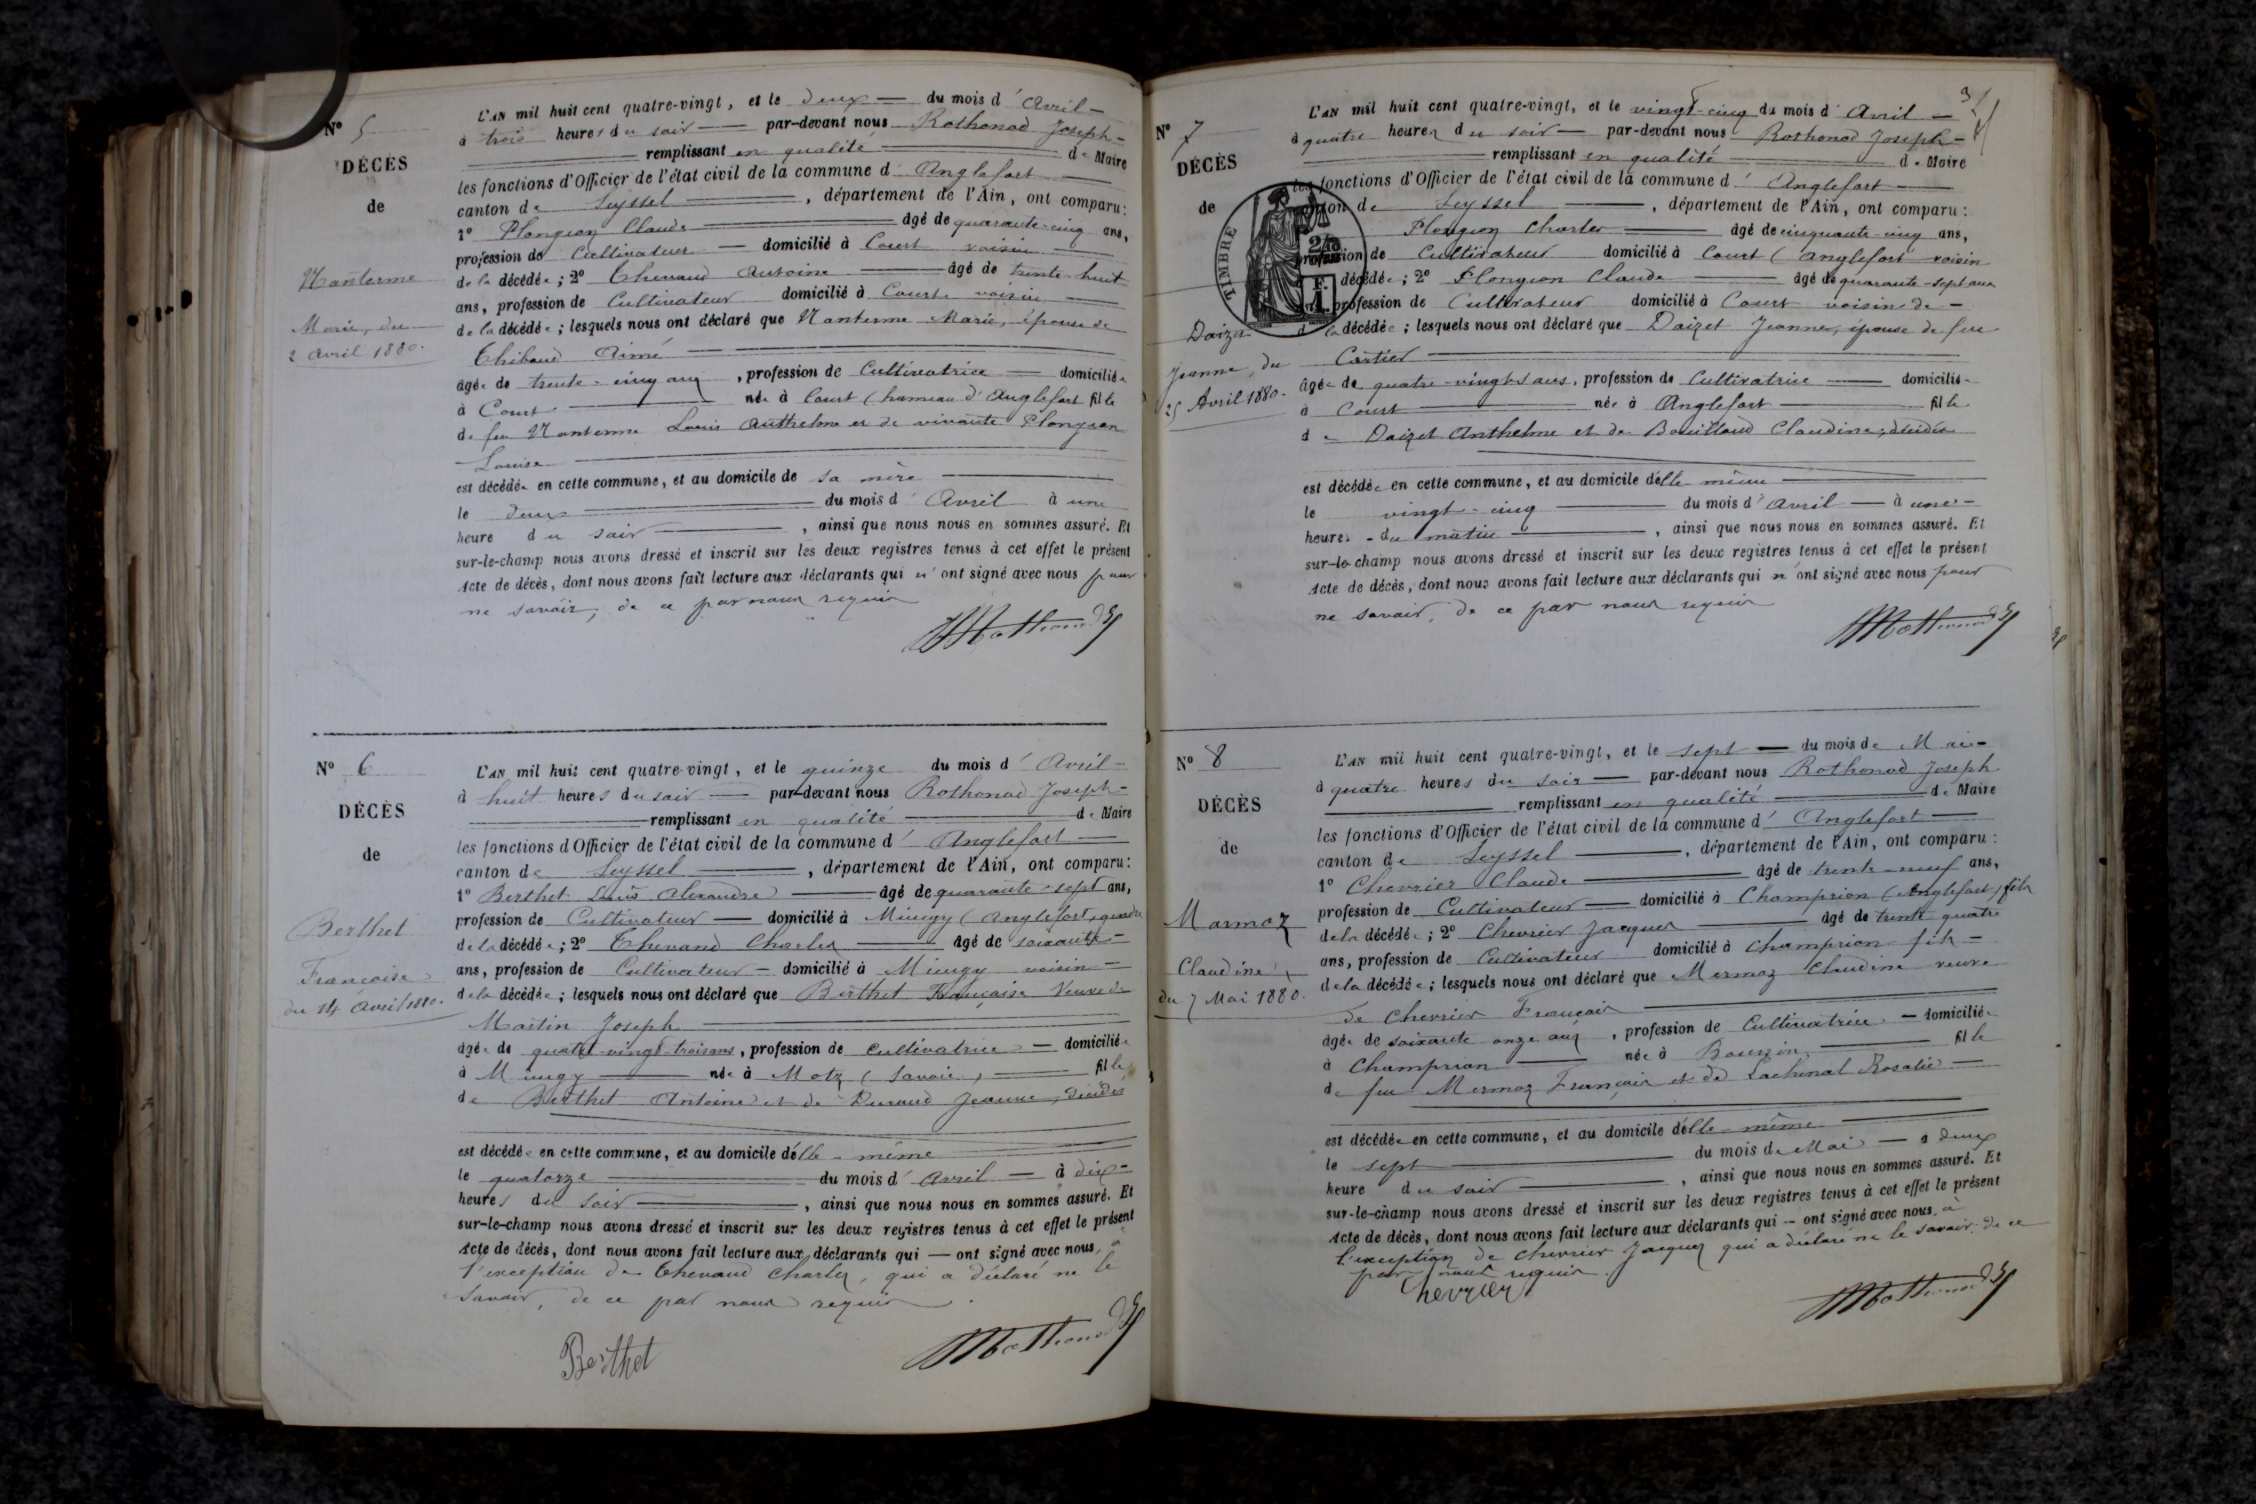 N° 5
DÉCÈS
de
Nanterme
Marie, du
2 Avril 1880.
L'AN mil huit cent quatre-vingt, et le deux du mois d'Avril
à trois heures du soir par-devant nous Rothonod Joseph
remplissant en qualité de Maire
les fonctions d'Officier de l'état civil de la commune d'Anglefort
canton de Seyssel, département de l'Ain, ont comparu:
1° Plongeon Claude âgé de quarante-cinq ans,
profession de Cultivateur domicilié à Court voisin
de la décédée; 2° Thevand Antoine âgé de trente-huit
ans, profession de Cultivateur domicilié à Court voisin
de la décédée; lesquels nous ont déclaré que Nanterme Marie, épouse de
Thibaud Aimé
âgée de trente-cinq ans, profession de Cultivatrice domiciliée
à Court née à Court (hameau d'Anglefort fille
de feu Nanterme Louis Anthelme et de vivante Plongeon
Louise
est décédée en cette commune, et au domicile de sa mère
le deux du mois d'Avril à une
heure du soir, ainsi que nous nous en sommes assuré. Et
sur-le-champ nous avons dressé et inscrit sur les deux registres tenus à cet effet le présent
Acte de décès, dont nous avons fait lecture aux déclarants qui n'ont signé avec nous pour
ne savoir, de ce par nous requis
Rothonod
N° 6
DÉCÈS
de
Berthet
Françoise
du 14 Avril 1880.
L'AN mil huit cent quatre-vingt, et le quinze du mois d'Avril
à huit heures du soir par-devant nous Rothonod Joseph
remplissant en qualité de Maire
les fonctions d'Officier de l'état civil de la commune d'Anglefort
canton de Seyssel, département de l'Ain, ont comparu:
1° Berthet Louis Alexandre âgé de quarante-sept ans,
profession de Cultivateur domicilié à Mieugy (Anglefort,
de la décédée; 2° Thevand Charles âgé de soixante
ans, profession de Cultivateur domicilié à Mieugy voisin
de la décédée; lesquels nous ont déclaré que Berthet Françoise Veuve de
Martin Joseph
âgée de quatre-vingt-trois ans, profession de cultivatrice domiciliée
à Mieugy née à Motz (Savoie) fille
de Berthet Antoine et de Durand Jeanne, décédés
est décédée en cette commune, et au domicile d'elle-même
le quatorze du mois d'Avril à dix
heures du soir, ainsi que nous nous en sommes assuré. Et
sur-le-champ nous avons dressé et inscrit sur les deux registres tenus à cet effet le présent
Acte de décès, dont nous avons fait lecture aux déclarants qui — ont signé avec nous, à
l'exception de Thevand Charles, qui a déclaré ne le
savoir, de ce par nous requis.
Berthet
Rothonod
N° 7
DÉCÈS
de
TIMBRE
Daizet
Jeanne, du
25 Avril 1880.
L'AN mil huit cent quatre-vingt, et le vingt-cinq du mois d'Avril
à quatre heures du soir par-devant nous Rothonod Joseph
remplissant en qualité de Maire
les fonctions d'Officier de l'état civil de la commune d'Anglefort
canton de Seyssel, département de l'Ain, ont comparu:
Plongeon Charles âgé de cinquante-cinq ans,
profession de Cultivateur domicilié à Court (Anglefort voisin
décédée; 2° Plongeon Claude âgé de quarante-sept ans
profession de Cultivateur domicilié à Court voisin de
la décédée; lesquels nous ont déclaré que Daizet Jeanne, épouse de feu
Cartier
âgée de quatre-vingts ans, profession de Cultivatrice domiciliée
à Court née à Anglefort fille
de Daizet Anthelme et de Bouillaud Claudine, décédés
est décédée en cette commune, et au domicile d'elle même
le vingt-cinq du mois d'Avril à une
heure du matin, ainsi que nous nous en sommes assuré. Et
sur-le-champ nous avons dressé et inscrit sur les deux registres tenus à cet effet le présent
Acte de décès, dont nous avons fait lecture aux déclarants qui n'ont signé avec nous pour
ne savoir, de ce par nous requis
Rothonod
N° 8
DÉCÈS
de
Marmoz
Claudine,
du 7 Mai 1880.
L'AN mil huit cent quatre-vingt, et le sept du mois de Mai
à quatre heures du soir par-devant nous Rothonod Joseph
remplissant en qualité de Maire
les fonctions d'Officier de l'état civil de la commune d'Anglefort
canton de Seyssel, département de l'Ain, ont comparu:
1° Chevrier Claude âgé de trente-neuf ans,
profession de Cultivateur domicilié à Champrion (Anglefort) fils
de la décédée; 2° Chevrier Jacques âgé de trente quatre
ans, profession de Cultivateur domicilié à Champrion fils
de la décédée; lesquels nous ont déclaré que Mermoz Claudine veuve
de Chevrier François
âgée de soixante onze ans, profession de Cultivatrice domiciliée
à Champrion née à fille
de feu Mermoz François et de Lachenal Rosalie
est décédée en cette commune, et au domicile d'elle-même
le sept du mois de Mai à deux
heure du soir, ainsi que nous nous en sommes assuré. Et
sur-le-champ nous avons dressé et inscrit sur les deux registres tenus à cet effet le présent
Acte de décès, dont nous avons fait lecture aux déclarants qui — ont signé avec nous, à
l'exception de Chevrier Jacques qui a déclaré ne le savoir, de ce
par nous requis.
Chevrier
Rothonod